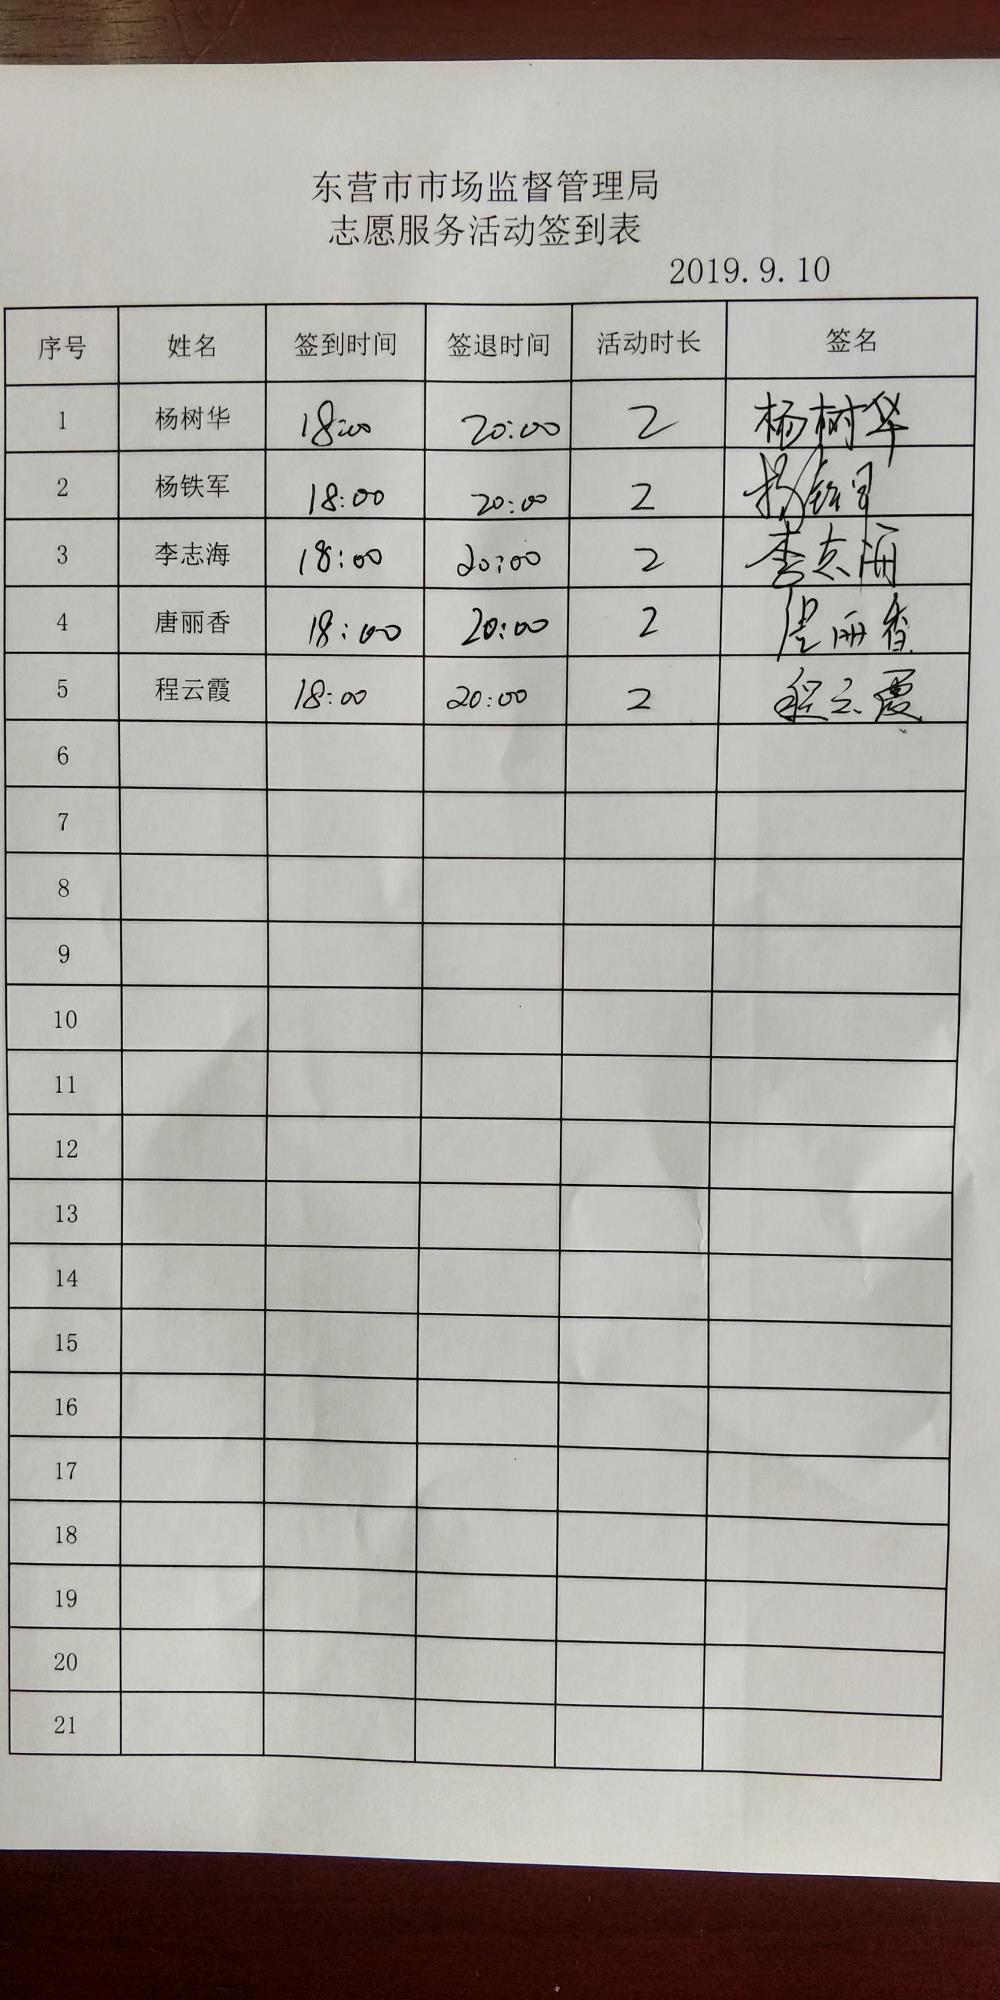 东营市市场监督管理局
志愿服务活动签到表
2019.9.10
序号 姓名 签到时间 签退时间 活动时长 签名
1 杨树华 18:00 20:00 2 杨树华
2 杨铁军 18:00 20:00 2 杨铁军
3 李志海 18:00 20:00 2 李志海
4 唐丽香 18:00 20:00 2 唐丽香
5 程云霞 18:00 20:00 2 程云霞
6
7
8
9
10
11
12
13
14
15
16
17
18
19
20
21